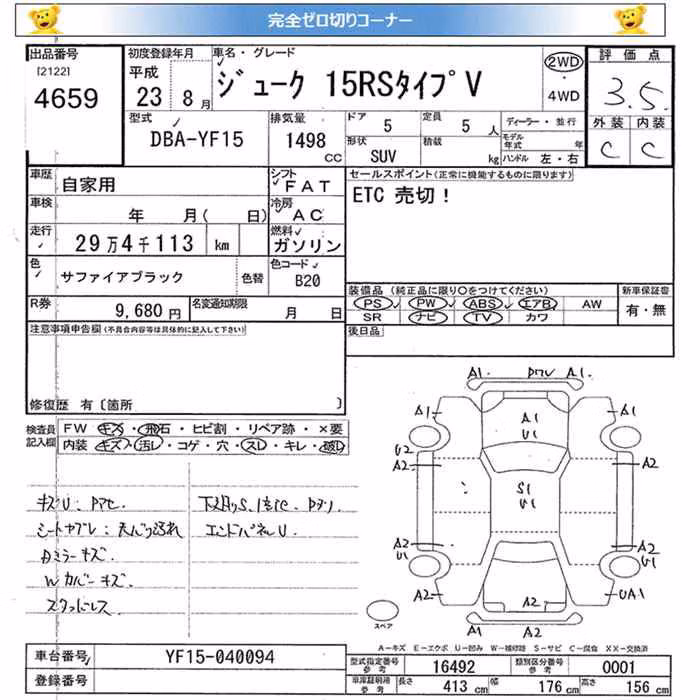 完全ゼロ切りコーナー
出品番号
[2122]
4659
初度登録年月
平成
23 8月
車名・グレード
ジューク 15RSタイプV
2WD
4WD
評価点
3.5
外装 内装
C C
型式
DBA-YF15
排気量
1498
CC
ドア
5
定員
5 人
形状
SUV
積載
kg
ディーラー・並行
モデル年式 年
ハンドル 左・右
車歴
自家用
シフト
FAT
車検
年 月( 日)
冷房
AC
走行
29万4千113 km
燃料
ガソリン
色
サファイアブラック
色替
色コード
B20
R券
9,680円
名変通知期限
月 日
セールスポイント(正常に機能するものに限ります)
ETC 売切!
装備品(純正品に限り○をつけてください)
PS PW ABS エアB AW
SR ナビ TV カワ
新車保証書
有・無
後日品
注意事項申告欄(不具合内容等は具体的に記入して下さい)
修復歴 有〔箇所 〕
検査員記入欄
FW キズ・飛石・ヒビ割・リペア跡・×要
内装 キズ・汚レ・コゲ・穴・スレ・キレ・破レ
キズU:
シートヤブレ:天バリ汚れ
ミラーキズ.
Wカバーキズ.
スタッドレス
下廻りS.
エンドパネルU.
A1. A1.
A1 A1
A1
U1
U2
A2 A2
S1
U1
A2
U1
A2
U1
A2 UA1
A2
A1 A2
スペア
A-キズ E-エクボ U-凹み W-補修跡 S-サビ C-腐食 XX-交換済
車台番号
YF15-040094
登録番号
型式指定番号
参考
16492
類別区分番号
参考
0001
車庫証明用
参考
長さ 413cm 幅 176cm 高さ 156cm